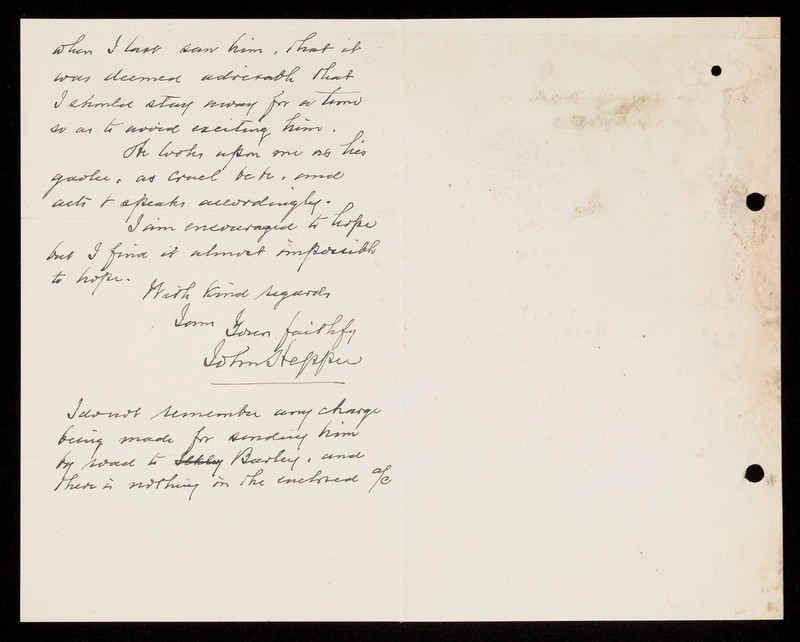 when I last saw him, that it
was deemed advisable that
I should stay away for a time
so as to avoid exciting him.
He looks upon me as his
gaoler, as cruel &c &c, and
acts & speaks accordingly.
I am encouraged to hope
but I find it almost impossible
to hope.
With kind regards
I am Yours faithfy
John Hepper
I do not remember any charge
being made for sending him
by road to Ilkley Burley, and
there is nothing in the enclosed a/c